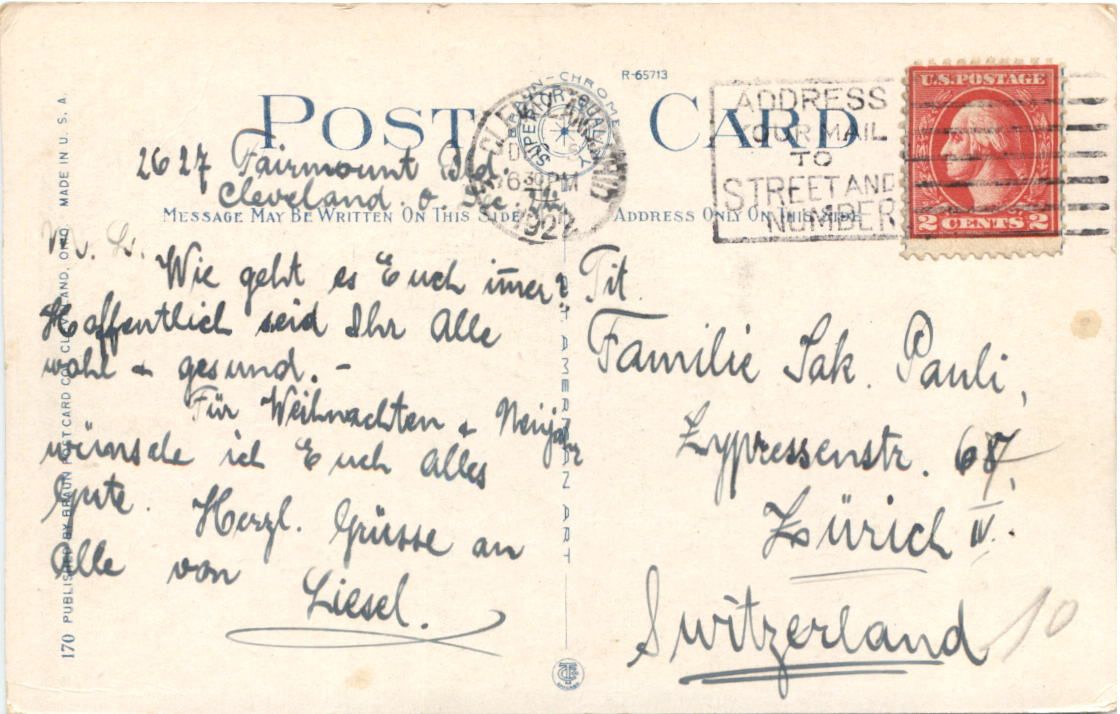 R-65713
POST CARD
SUPERIOR QUALITY
ADDRESS
YOUR MAIL
TO
STREET AND
NUMBER
U.S. POSTAGE
2 CENTS 2
630 PM
2627 Fairmount Bld.
Cleveland. O. Dec.
MESSAGE MAY BE WRITTEN ON THIS SIDE
ADDRESS ONLY ON THIS SIDE
M. L.
Wie geht es Euch im̅er?
Hoffentlich seid Ihr Alle
wohl & gesund. –
Für Weihnachten & Neujahr
wünsche ich Euch Alles
Gute. Herzl. Grüsse an
Alle von
Liesel.
Tit.
Familie Jak. Pauli,
Zypressenstr. 67,
Zürich IV.
Switzerland
10
170 PUBLISHED BY BRAUN POST CARD CO., CLEVELAND, OHIO MADE IN U.S.A.
AMERICAN ART